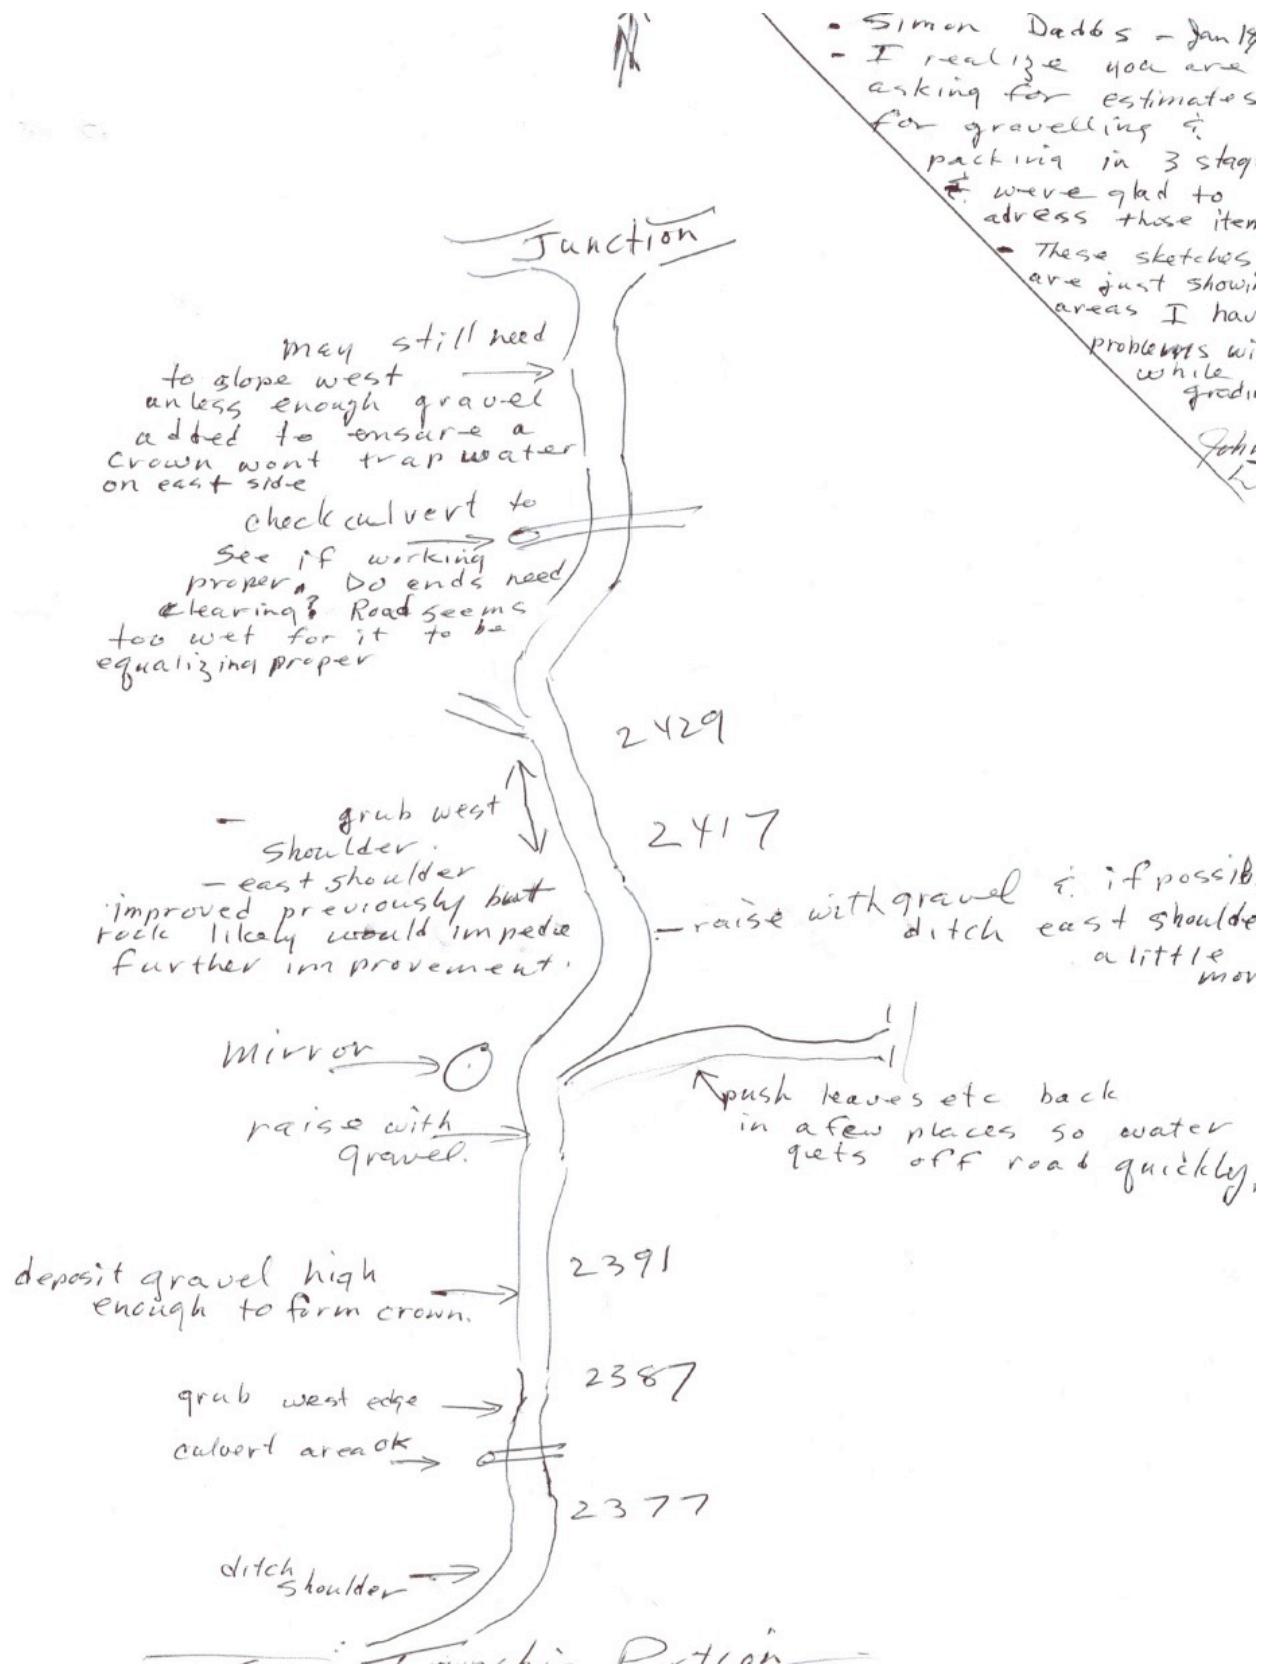 - Simon Dadbs - Jan 19
- I realize you are
asking for estimates
for gravelling &
packing in 3 stag
& were glad to
adress those item
- These sketches
are just showi
areas I hav
problems wi
while
gradi
John
Junction
may still need
to slope west
unless enough gravel
added to ensure a
crown wont trap water
on east side
check culvert to
see if working
proper. Do ends need
clearing? Road seems
too wet for it to be
equalizing proper
2429
- grub west
shoulder.
- east shoulder
improved previously but
rock likely would impede
further improvement.
2417
- raise with gravel & if possib
ditch east shoulde
a little
mor
mirror
raise with
gravel.
push leaves etc back
in a few places so water
gets off road quickly.
deposit gravel high
enough to form crown.
2391
2387
grub west edge
culvert area ok
2377
ditch
shoulder